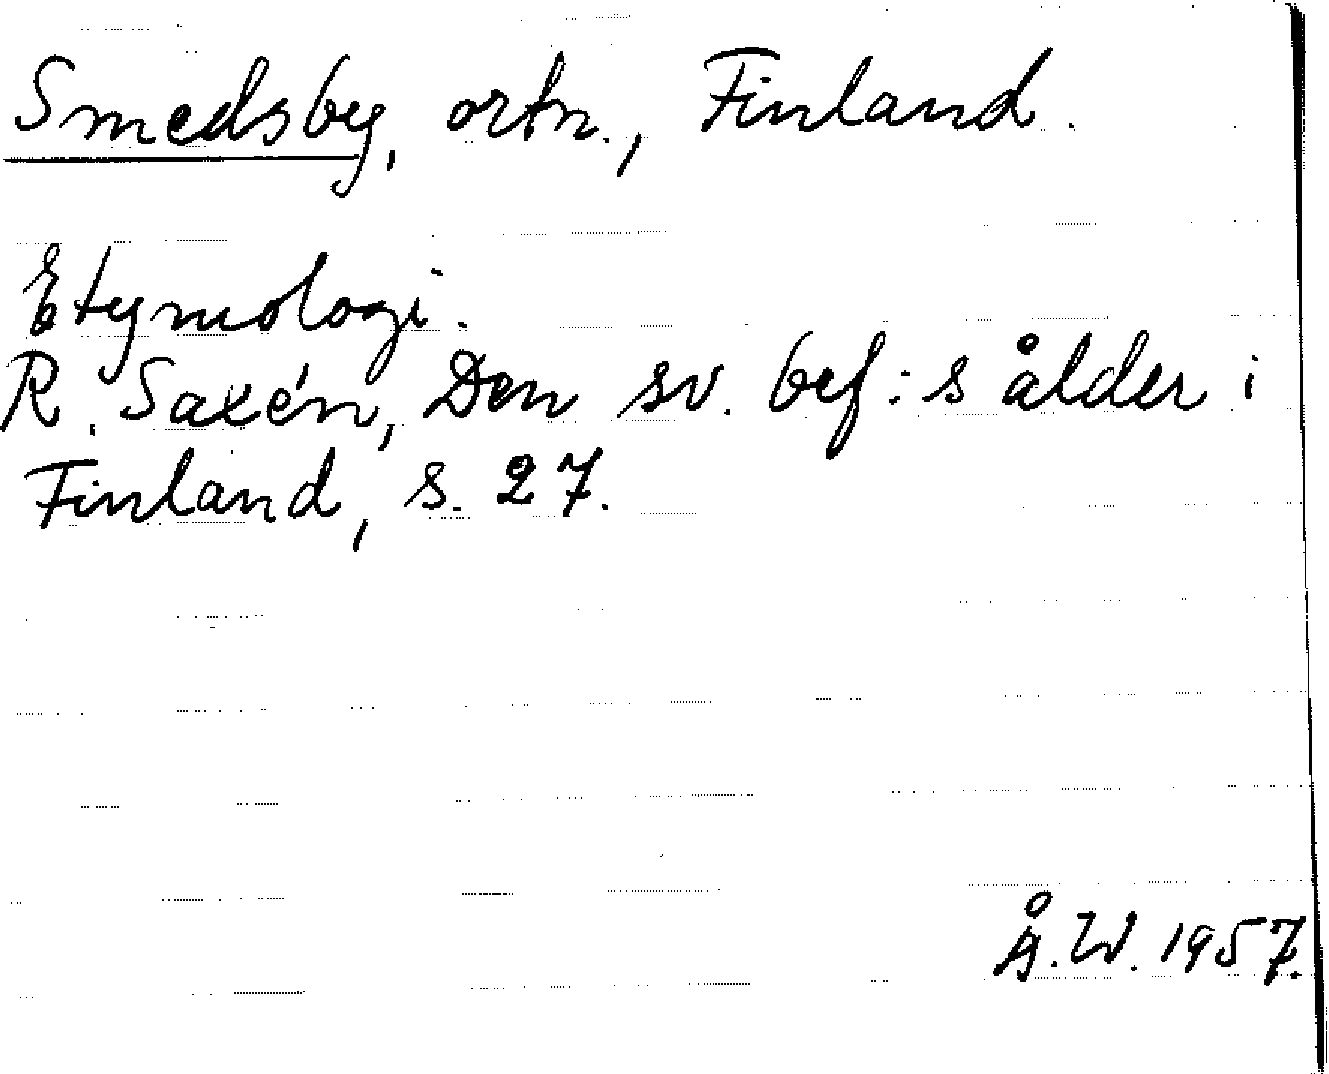 Smedsby, ortn., Finland.
Etymologi.
R. Saxén, Den sv. bef:s ålder i
Finland, s. 27.
Å.W. 1957.